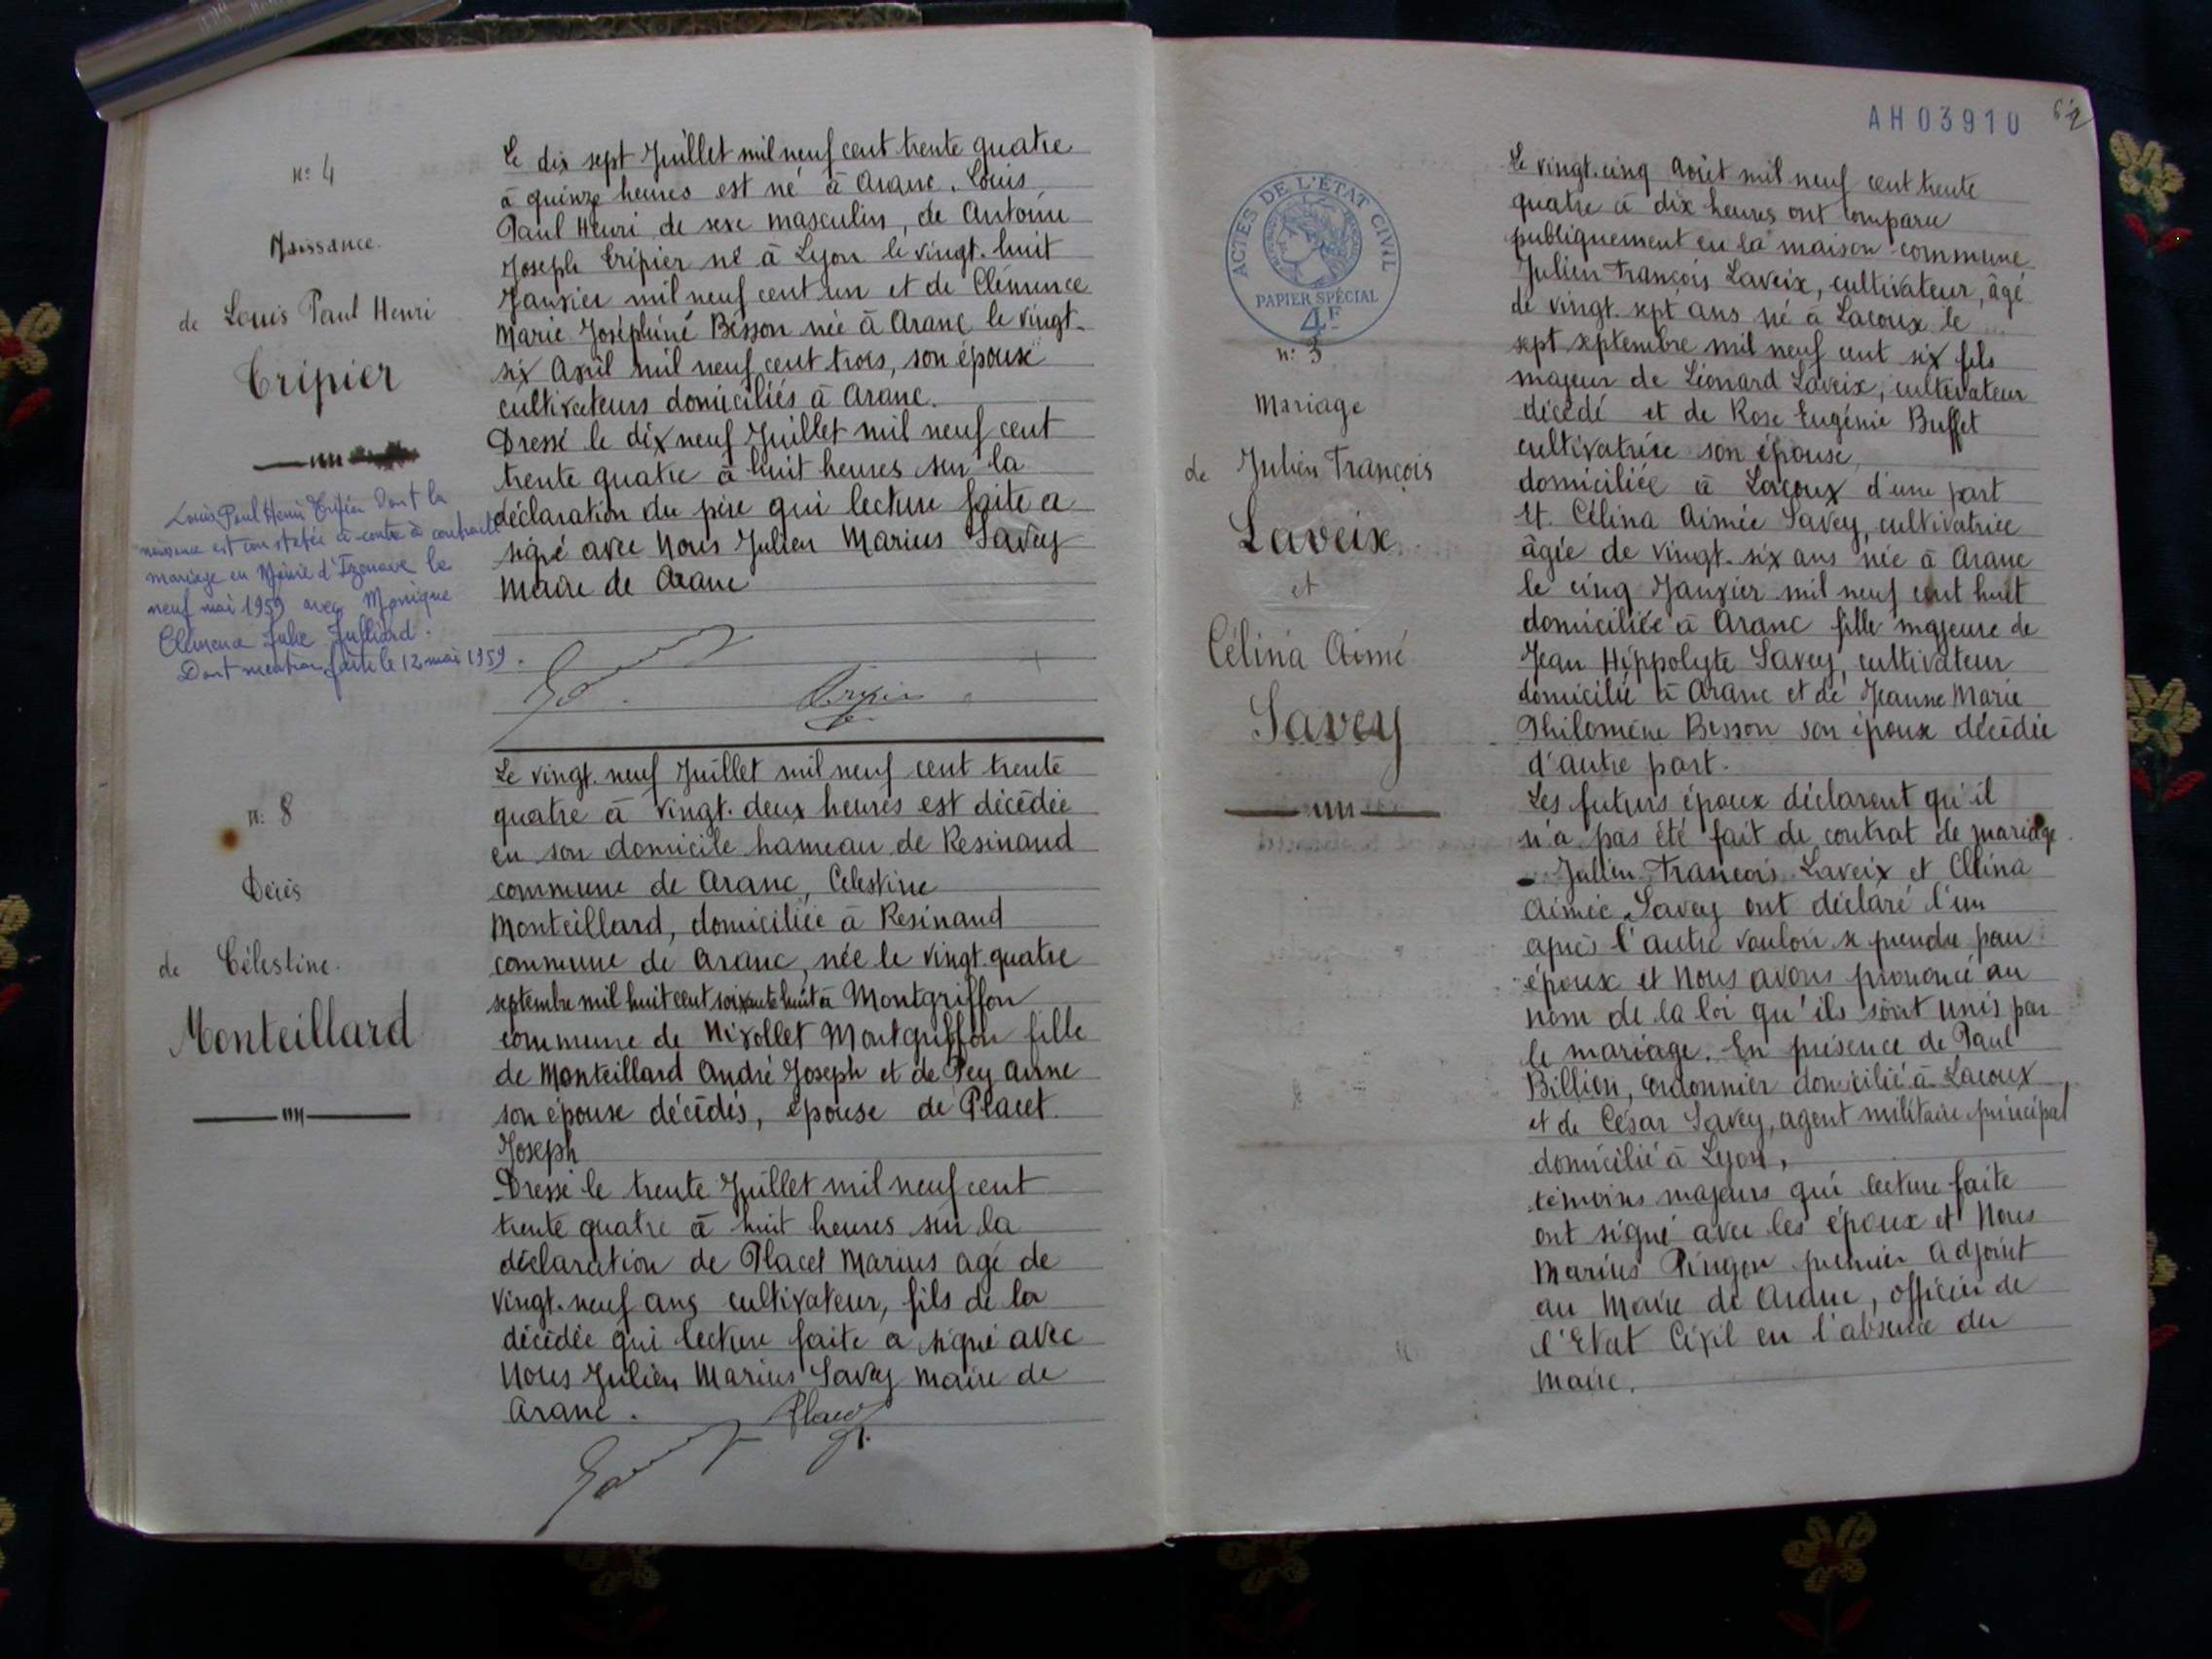 n° 4
Naissance.
de Louis Paul Henri
Tripier
Louis Paul Henri Tripier dont la
naissance est constatée ci-contre a contracté
mariage en Mairie d'Izenave le
neuf mai 1959 avec Monique
Clémence Julie Julliard.
Dont mention faite le 12 mai 1959.
Le dix sept Juillet mil neuf cent trente quatre
à quinze heures est né à Aranc. Louis
Paul Henri de sexe masculin, de Antoine
Joseph Tripier né à Lyon le vingt. huit
Janvier mil neuf cent un et de Clémence
Marie Joséphine Besson née à Aranc le vingt-
six Avril mil neuf cent trois, son épouse
cultivateurs domiciliés à Aranc.
Dressé le dix neuf Juillet mil neuf cent
trente quatre à huit heures sur la
déclaration du père qui lecture faite a
signé avec Nous Julien Marius Savey
Maire de Aranc
Tripier
n: 8
Décès
de Célestine.
Monteillard
Le vingt. neuf Juillet mil neuf cent trente
quatre à vingt. deux heures est décédée
en son domicile hameau de Resinand
commune de Aranc, Celestine
Monteillard, domiciliée à Resinand
commune de Aranc, née le vingt. quatre
septembre mil huit cent soixante huit à Montgriffon
commune de Nivollet Montgriffon fille
de Monteillard André Joseph et de Pey Anne
son épouse décédés, épouse de Placet
Joseph
Dressé le trente Juillet mil neuf cent
trente quatre à huit heures sur la
déclaration de Placet Marius agé de
vingt. neuf ans cultivateur, fils de la
décédée qui lecture faite a signé avec
Nous Julien Marius Savey Maire de
Aranc.
Placet
AH03910
62
ACTES DE L'ÉTAT CIVIL
PAPIER SPÉCIAL
4F
n: 3
Mariage
de Julien François
Laveix
et
Célina Aimé
Savey
Le vingt. cinq Août mil neuf cent trente
quatre à dix heures ont comparu
publiquement en la maison commune
Julien François Laveix, cultivateur, âgé
de vingt. sept ans né à Lacoux le
sept septembre mil neuf cent six fils
majeur de Léonard Laveix, cultivateur
décédé et de Rose Eugénie Buffet
cultivatrice son épouse,
domiciliée à Lacoux d'une part
Et. Célina Aimée Savey, cultivatrice
âgée de vingt. six ans née à Aranc
le cinq Janvier mil neuf cent huit
domiciliée à Aranc fille majeure de
Jean Hippolyte Savey, cultivateur
domicilié à Aranc et de Jeanne Marie
Philomène Besson son épouse décédée
d'autre part.
Les futurs époux déclarent qu'il
n'a pas été fait de contrat de mariage.
Julien François Laveix et Célina
Aimée Savey ont déclaré l'un
après l'autre vouloir se prendre pour
époux et Nous avons prononcé au
nom de la loi qu'ils sont unis par
le mariage. En présence de Paul
Billion, cordonnier domicilié à Lacoux,
et de César Savey, agent militaire principal
domicilié à Lyon,
témoins majeurs qui lecture faite
ont signé avec les époux et Nous
Marius Pingon premier Adjoint
au Maire de Aranc, officier de
l'Etat Civil en l'absence du
Maire.